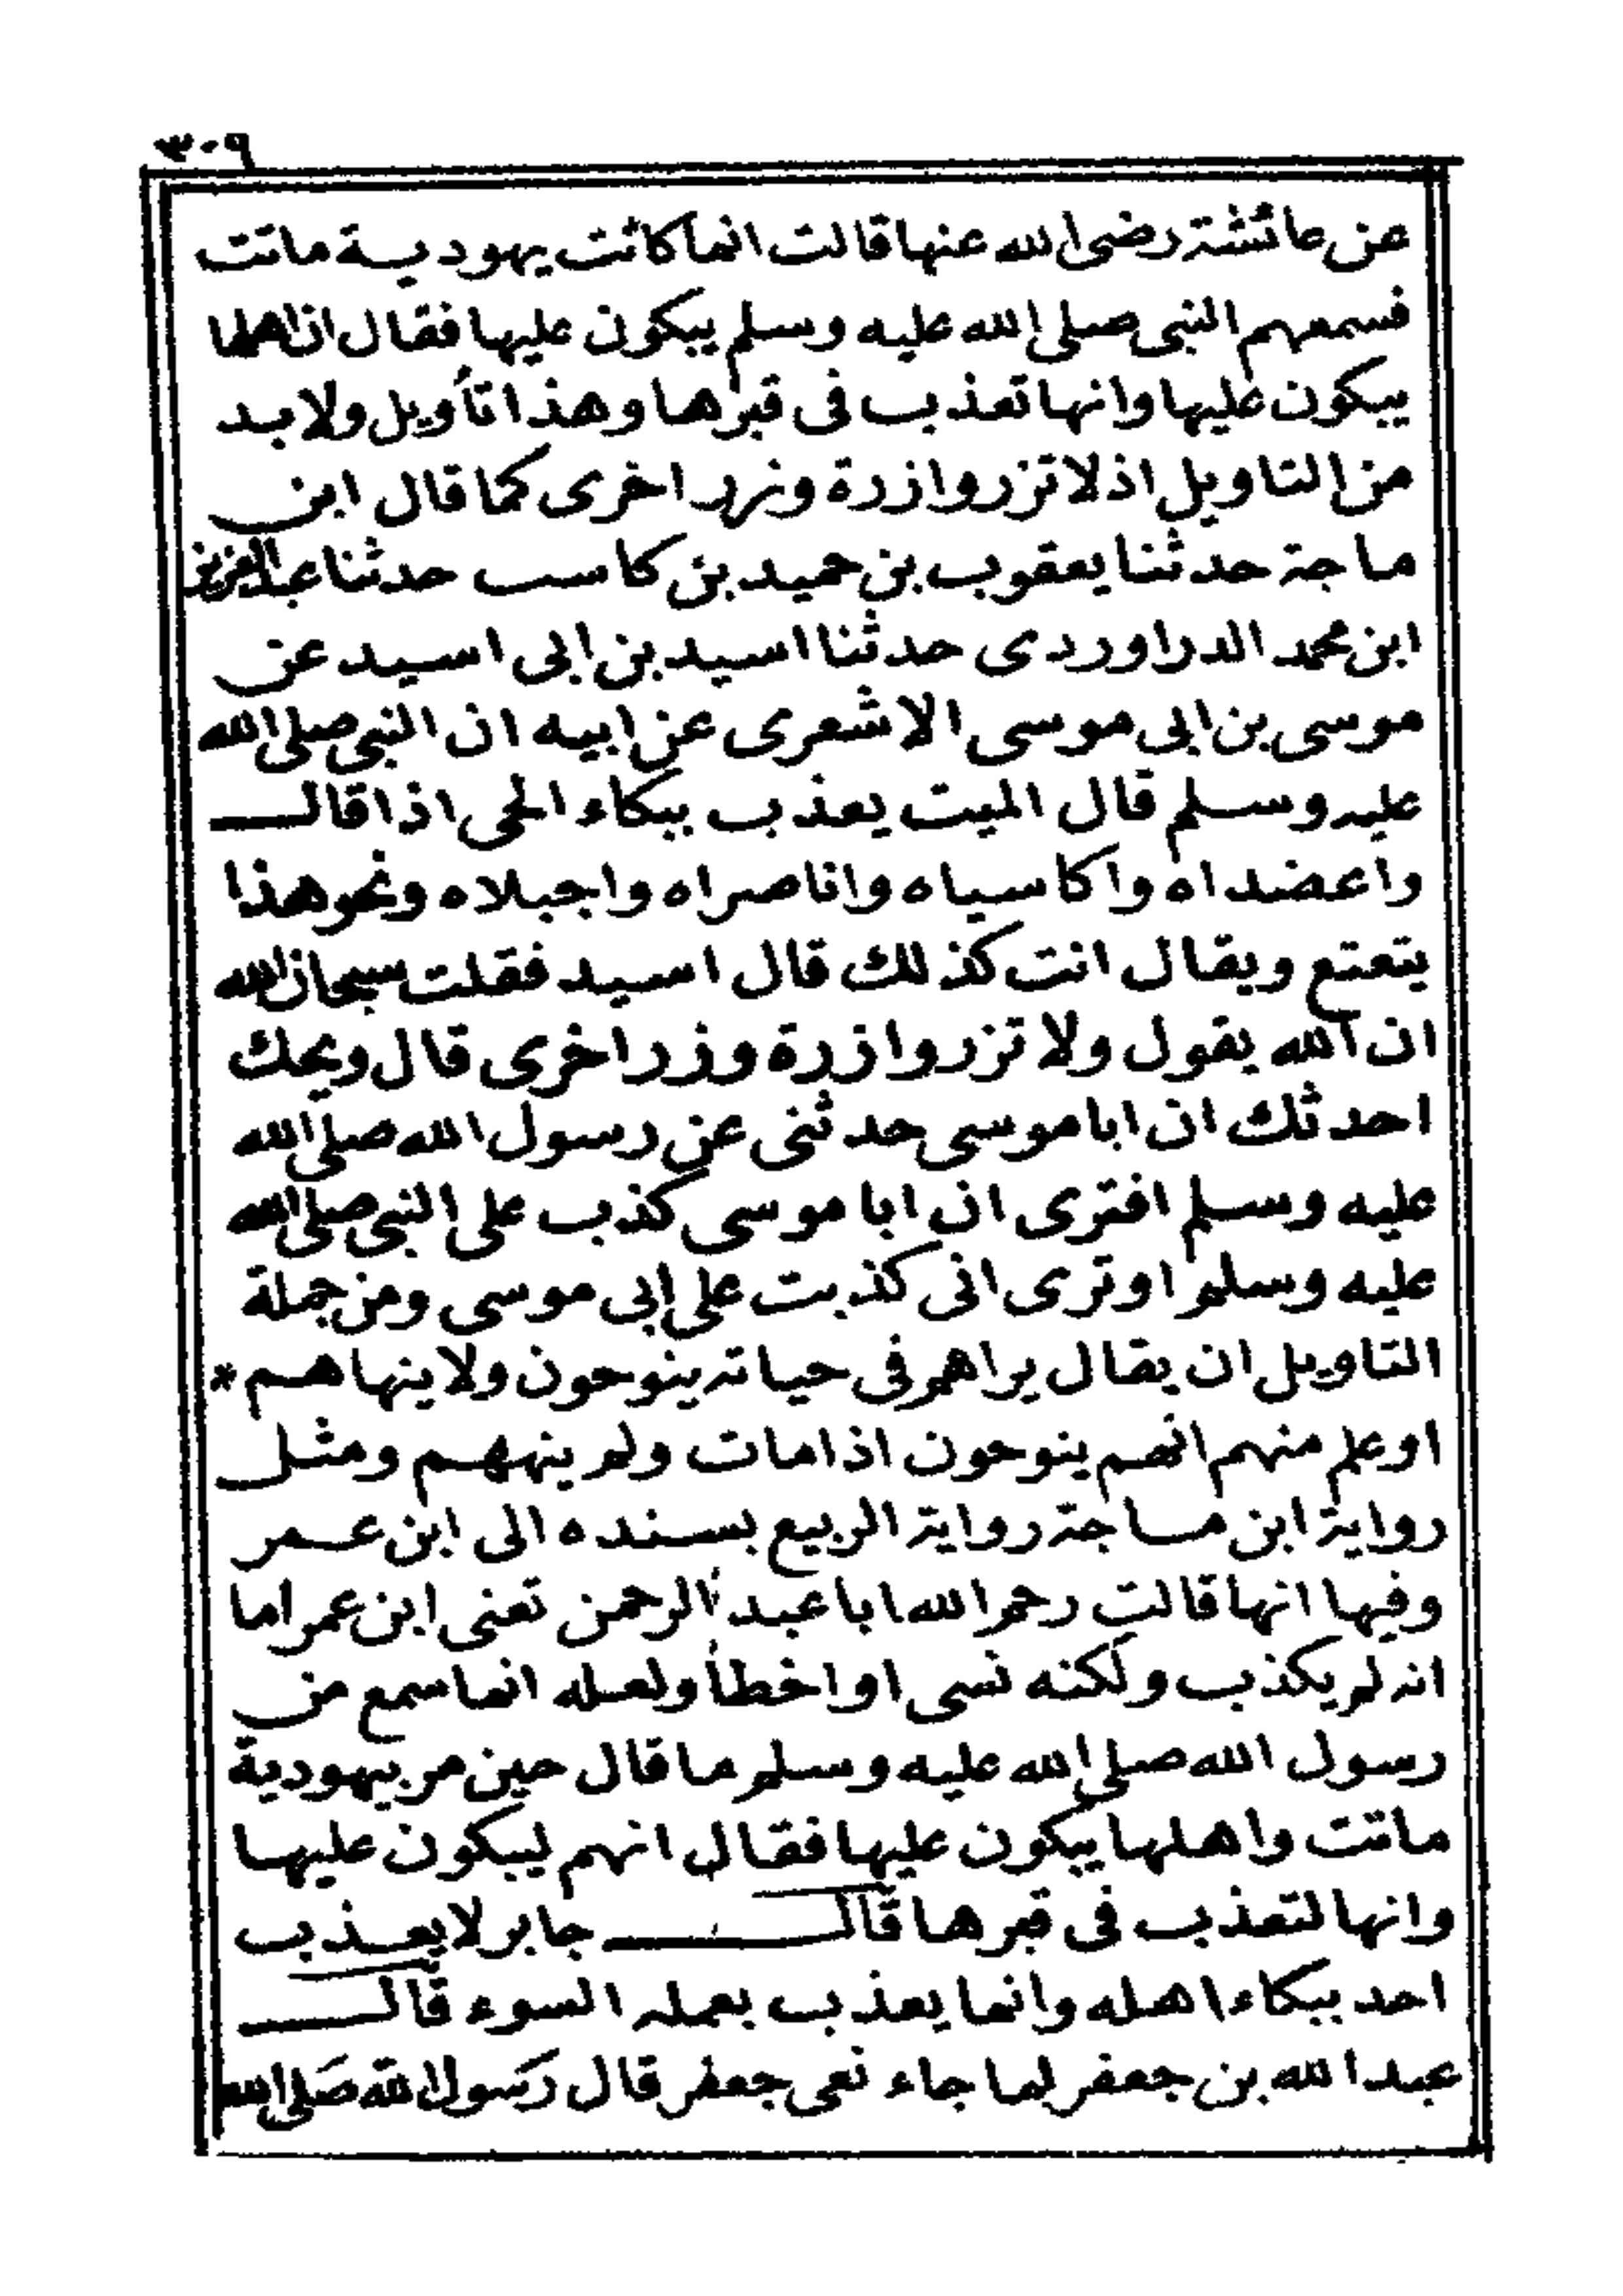 ٣٠٩
عن عائشة رضى الله عنها قالت انما كانت يهودية ماتت
فسمعهم النبى صلى الله عليه وسلم يبكون عليها فقال ان اهلها
يبكون عليها وانها تعذب فى قبرها وهذا تأويل ولابد
من التاويل اذ لا تزر وازرة وزر اخرى كما قال ابن
ماجة حدثنا يعقوب بن حميد بن كاسب حدثنا عبد العزيز
ابن محمد الدراوردى حدثنا اسيد بن ابى اسيد عن
موسى بن ابى موسى الاشعرى عن ابيه ان النبى صلى الله
عليه وسلم قال الميت يعذب ببكاء الحى اذا قال
واعضداه واكاسياه واناصراه واجبلاه ونحو هذا
يتعتع ويقال انت كذلك قال اسيد فقلت سبحان الله
ان الله يقول ولا تزر وازرة وزر اخرى قال ويحك
احدثك ان ابا موسى حدثنى عن رسول الله صلى الله
عليه وسلم افترى ان ابا موسى كذب على النبى صلى الله
عليه وسلم او ترى انى كذبت على ابى موسى ومن جملة
التاويل ان يقال يراهم فى حياته ينوحون ولا ينهاهم *
او علم منهم انهم ينوحون اذا مات ولم ينههم ومثل
رواية ابن ماجة رواية الربيع بسنده الى ابن عمر
وفيها انها قالت رحم الله ابا عبد الرحمن تعنى ابن عمر اما
انه لم يكذب ولكنه نسى او اخطأ ولعله انما سمع من
رسول الله صلى الله عليه وسلم ما قال حين مر بيهودية
ماتت واهلها يبكون عليها فقال انهم ليبكون عليها
وانها لتعذب فى قبرها قال جابر لا يعذب
احد ببكاء اهله وانما يعذب بعمله السوء قال
عبد الله بن جعفر لما جاء نعى جعفر قال رَسَول الله صَلى الله